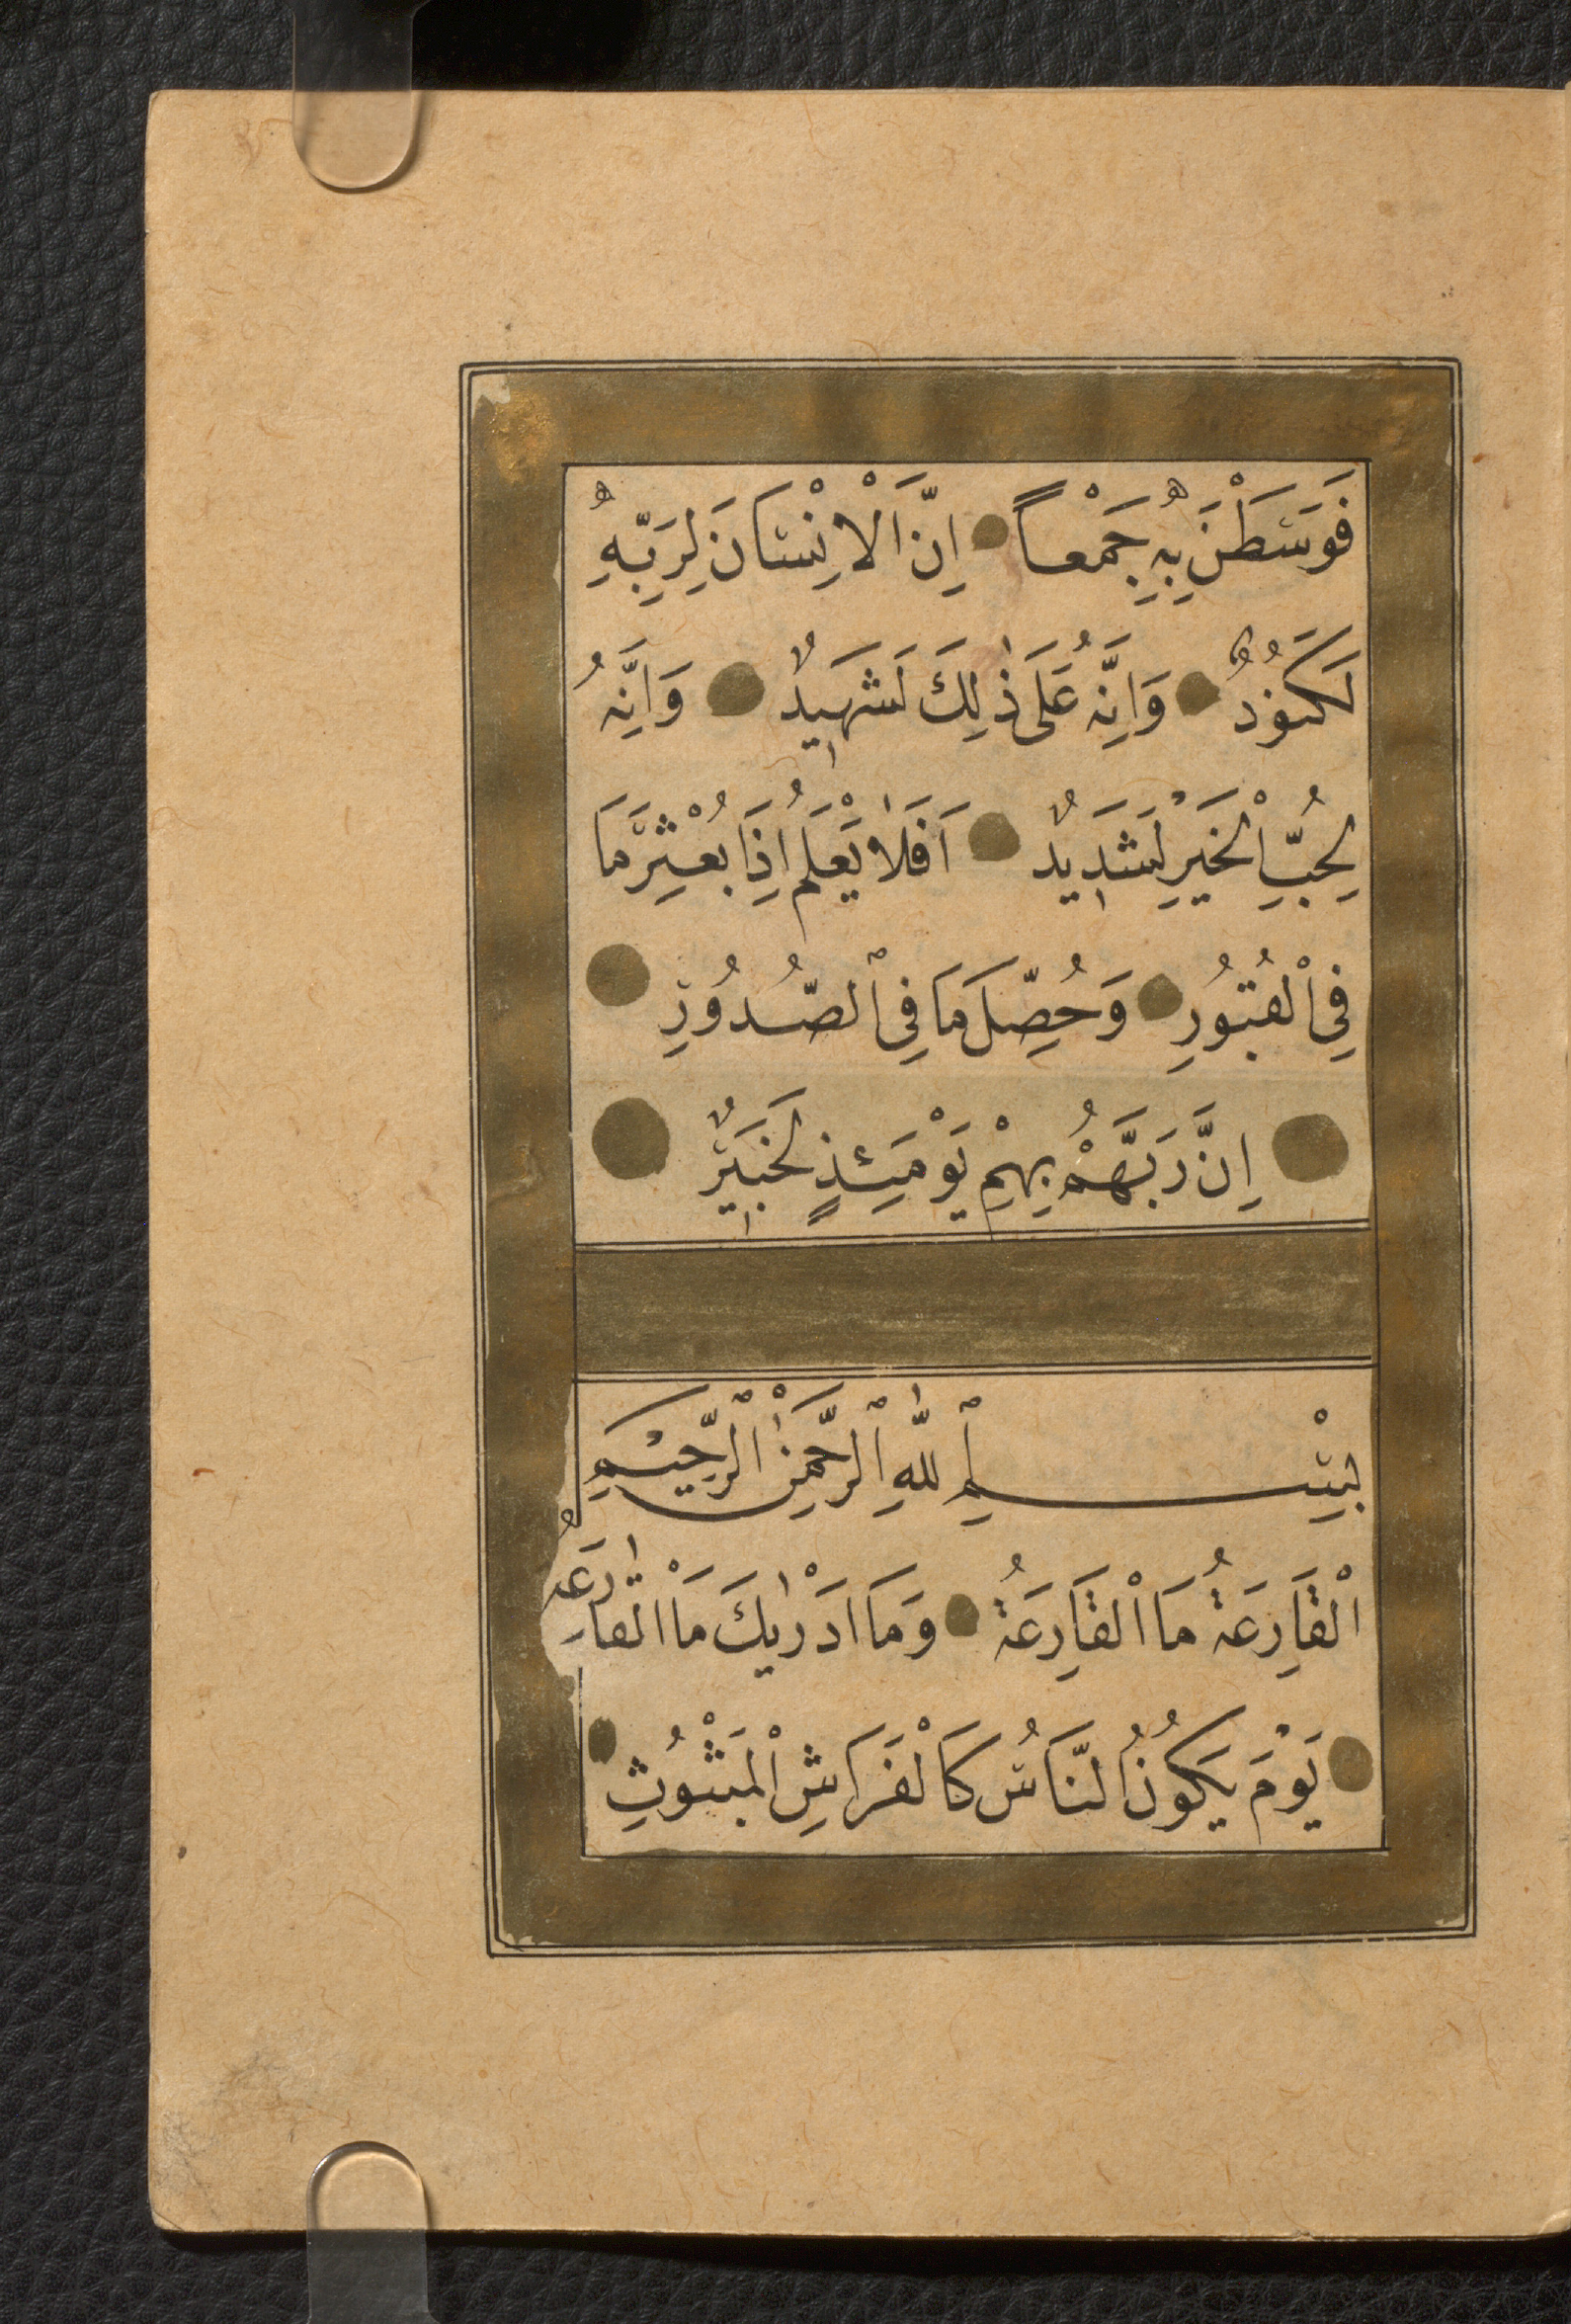 فَوَسَطْنَ بِهِ جَمْعاً اِنَّ الْاِنْسَانَ لِرَبِّهِ
لَكَنُودٌ وَاِنَّهُ عَلَى ذٰلِكَ لَشَهِيدٌ وَاِنَّهُ
لِحُبِّ الْخَيْرِ لَشَدِيدٌ اَفَلَا يَعْلَمُ اِذَا بُعْثِرَ مَا
فِى الْقُبُورِ وَحُصِّلَ مَا فِى الصُّدُورِ
اِنَّ رَبَّهُمْ بِهِمْ يَوْمَئِذٍ لَخَبِيرٌ
بِسْمِ اللّٰهِ الرَّحْمٰنِ الرَّحِيمِ
اَلْقَارِعَةُ مَا الْقَارِعَةُ وَمَا اَدْرٰيكَ مَا الْقَارِعَةُ
يَوْمَ يَكُونُ النَّاسُ كَالْفَرَاشِ الْمَبْثُوثِ